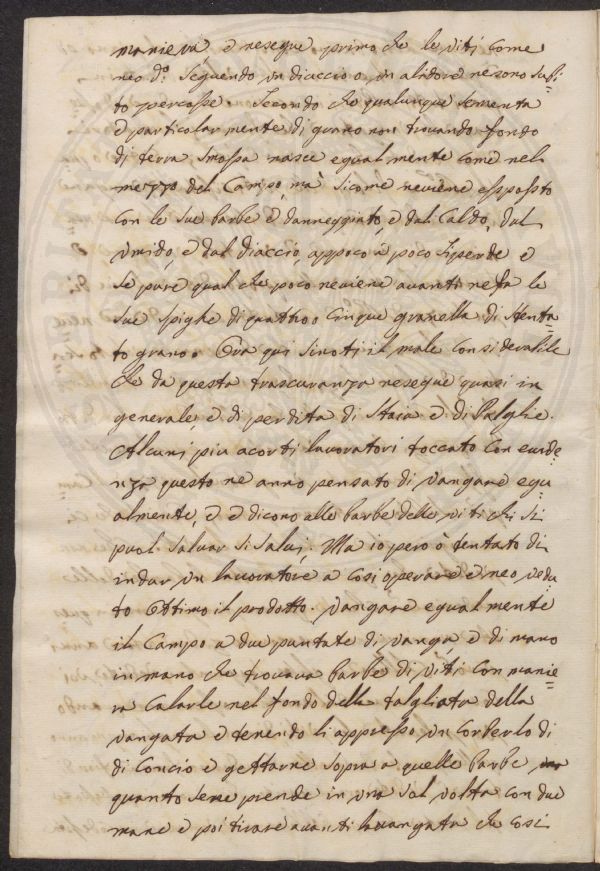 maniera e nesegue primo che le viti come
neo d.º seguendo un diaccio o un alidore ne sono subi=
to percosse. Secondo che qualunque sementa
e particolar mente di grano non trovando fondo
di terra smossa nasce egual mente come nel
mezzo del Campo, mà sicome neviene esposto
con le sue barbe è danneggiato, e dal Caldo, dal
umido, e dal diaccio, appoco à poco si perde e
se pure qual che poco neviene avanti ne fa le
sue spighe di quattro o cinque granella di stenta=
to grano. Ora qui si noti il male considerabile
che da questa trascuranza nesegue quasi in
generale e di perdita di staia e di Palghe.
Alcuni piu acorti lavoratori toccato con evide=
nza questo ne anno pensato di vangare egu=
almente, e e dicono alle barbe delle viti chi si
puol salvar si salvi, Ma io pero ò tentato di
indur un lavoratore a cosi operare e neo vedu=
to Ottimo il prodotto. vangare egual mente
il Campo a due puntate di vanga, e di mano
in mano che trovava barbe di viti con manie=
ra Calarle nel fondo della talgliata della
vangata e tenendo li appresso un Corbello di
di Concio e gettarne sopra a quelle barbe
quanto sene prende in una sol volta con due
mane e poi tirare avanti la vangata che cosi